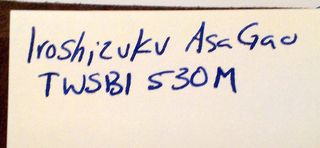 Iroshizuku AsaGao
TWSBI 530M